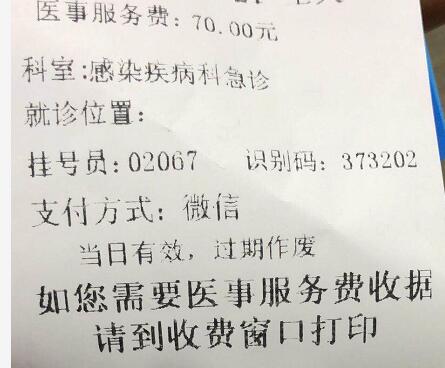 医事服务费: 70.00元
科室:感染疾病科急诊
就诊位置:
挂号员: 02067 识别码: 373202
支付方式: 微信
当日有效, 过期作废
如您需要医事服务费收据
请到收费窗口打印